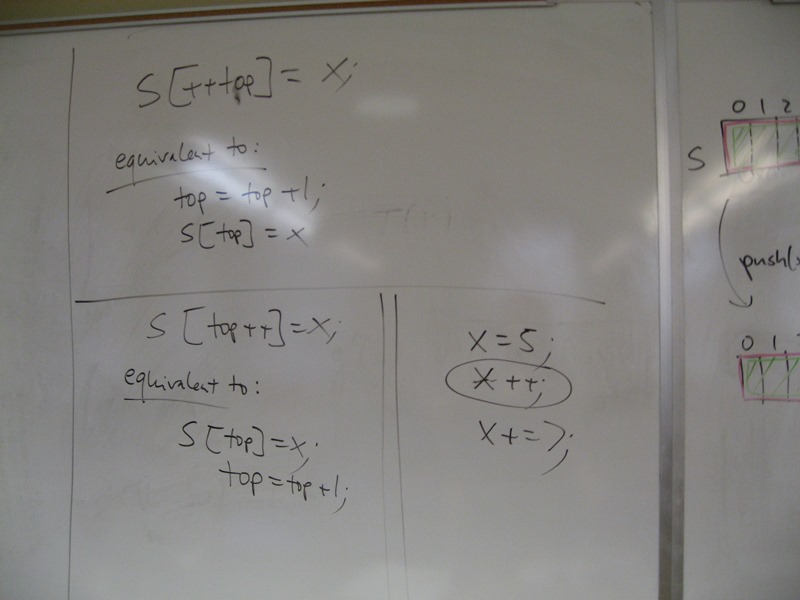 S[++top] = x;
equivalent to:
top = top +1;
S[top] = x
S[top++]=x;
equivalent to:
S[top]=x;
top=top+1;
x=5;
x++;
x+=7;
0 1 2
S
push(
0 1